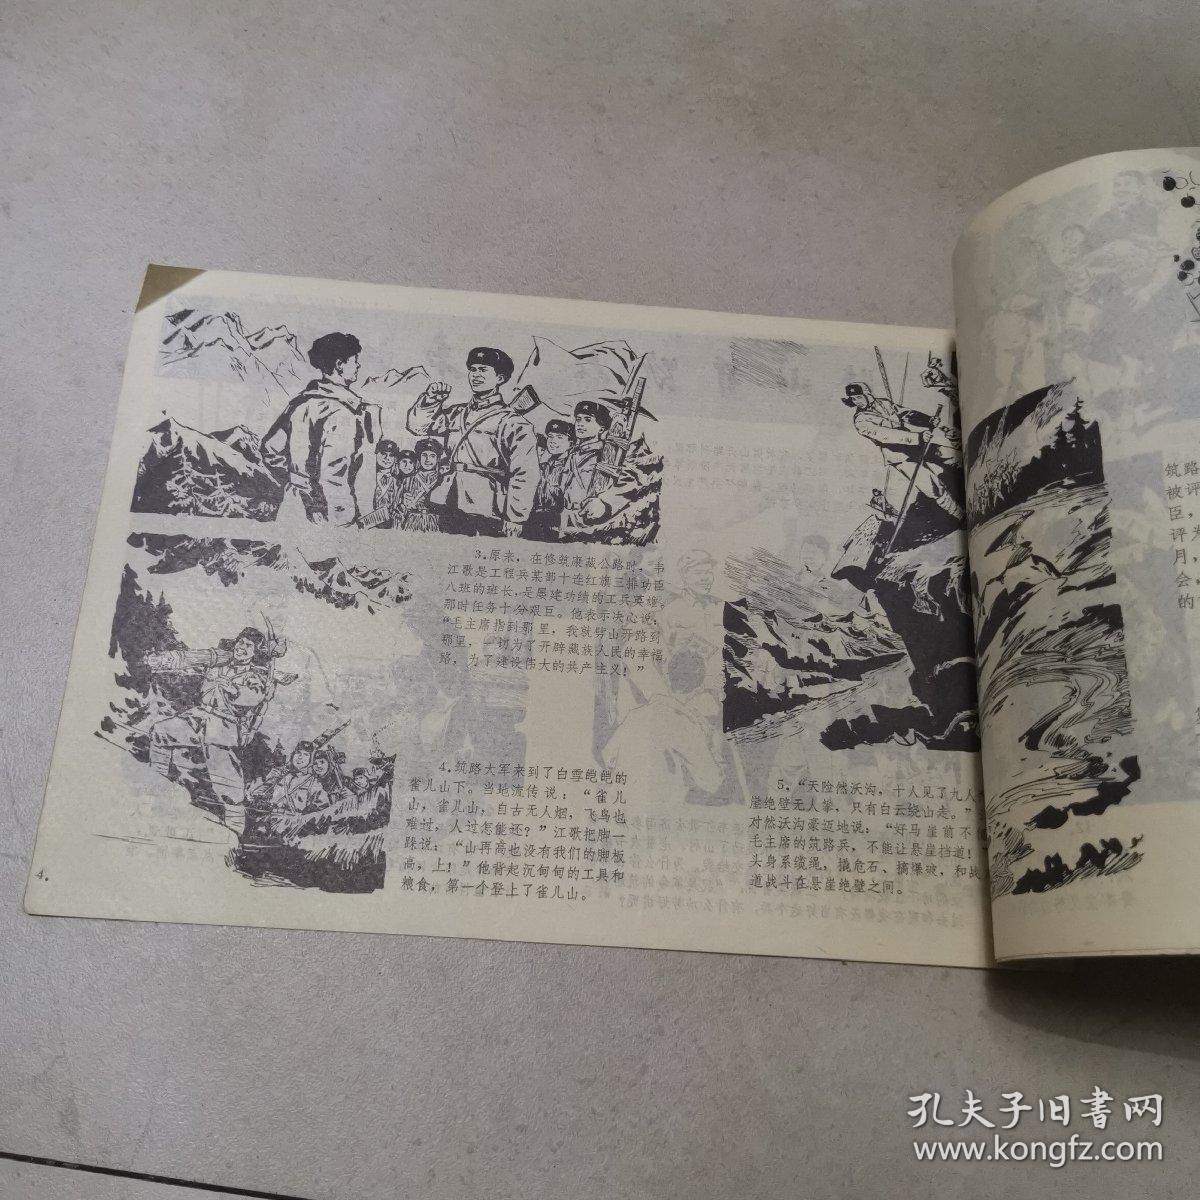 3.原来，在修筑康藏公路时，韦
江歌是工程兵某部十连红旗三排功臣
八班的班长，是屡建功绩的工兵英雄。
那时任务十分艰巨。他表示决心说：
“毛主席指到那里，我就劈山开路到
那里，一切为了开辟藏族人民的幸福
路，为了建设伟大的共产主义！”
4.筑路大军来到了白雪皑皑的
雀儿山下。当地流传说：“雀儿
山，雀儿山，自古无人烟，飞鸟也
难过，人过怎能还？”江歌把脚一
跺说：“山再高也没有我们的脚板
高，上！”他背起沉甸甸的工具和
粮食，第一个登上了雀儿山。
4.
5.“天险然沃沟，十人见了九人
崖绝壁无人攀，只有白云绕山走。”
对然沃沟豪迈地说：“好马崖前不
毛主席的筑路兵，不能让悬崖挡道！
头身系缆绳，撬危石、摘爆破，和战
道战斗在悬崖绝壁之间。
筑路
被评
臣，
评为
月，
会的
的
孔夫子旧书网
www.kongfz.com